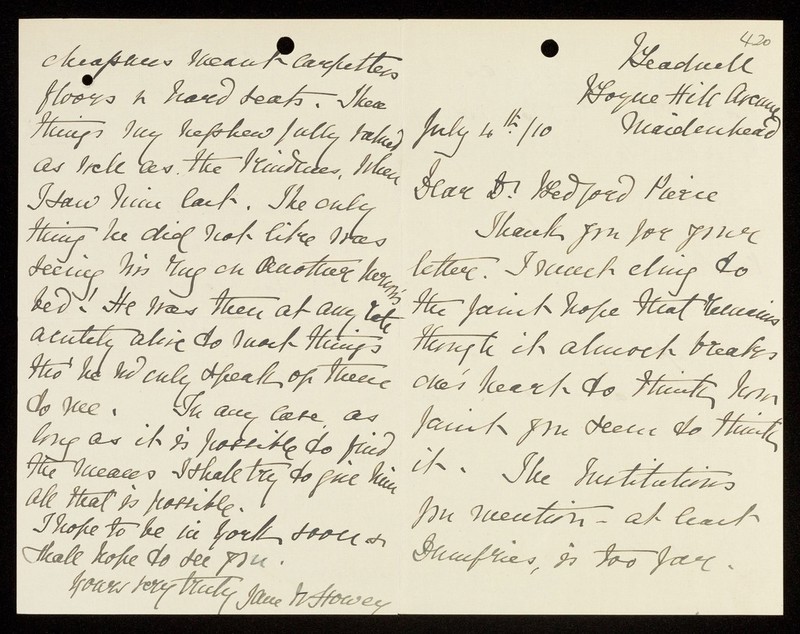 420
Headnell
Boyne Hill Avenue
Maidenhead
July 4th/10
Dear Dr Bedford Pierce
Thank you for your
letter. I must cling to
the faint hope that remains
though it almost breaks
one's heart to think how
faint you seem to think
it. The Institutions
you mention - at least
Dumfries, is too far.
cheapness meant carpetless
floors & hard seats. These
things my nephew fully valued
as well as the kindness, when
I saw him last. The only
thing he did not like was
seeing his rug on another person's
bed! He was then at any rate
acutely alive to most things
tho' he wd only speak of them
to me. In any case as
long as it is possible to find
the means I shall try to give him
all that is possible.
I hope to be in York soon &
shall hope to see you.
Yours very truly Jane